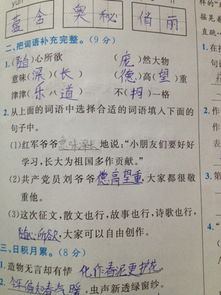 蓝舍 奥秘 俏丽
二、把词语补充完整。(9分)
1.(随)心所欲 (庞)然大物
意味(深)(长) (德)高(望)重
津津(乐)(道) 不(拘)一格
2.从上面的词语中选择合适的词语填入下面的
句子中。
(1)红军爷爷意味深长地说:“小朋友们要好好
学习,长大为祖国多作贡献。”
(2)共产党员刘爷爷德高望重,大家都很敬
重他。
(3)这次征文,散文也行,故事也行,诗歌也行,
随心所欲,大家可以自由创作。
三、日积月累。(8分)
1.造物无言却有情 化作春泥更护花
2. 春气暖,虫声新透绿窗纱